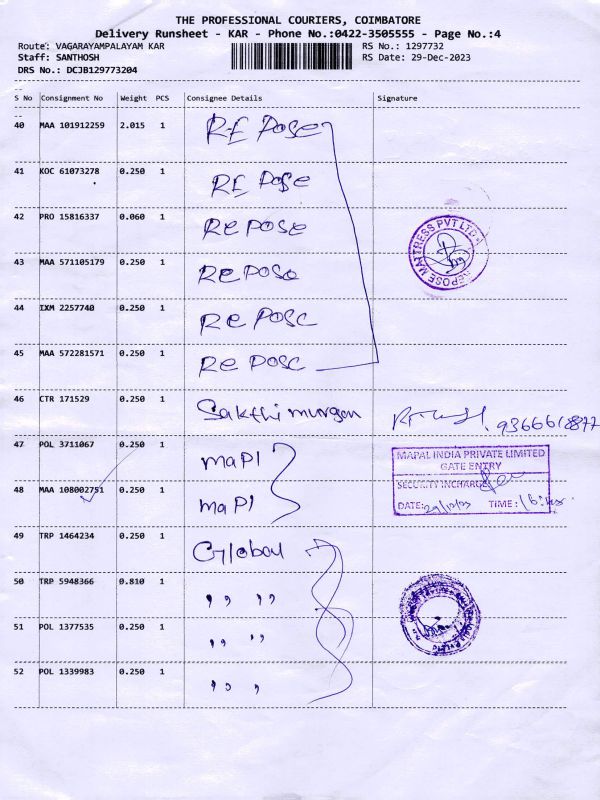 THE PROFESSIONAL COURIERS, COIMBATORE
Delivery Runsheet - KAR - Phone No.:0422-3505555 - Page No.:4
Route: VAGARAYAMPALAYAM KAR RS No.: 1297732
Staff: SANTHOSH RS Date: 29-Dec-2023
DRS No.: DCJB129773204
S No Consignment No Weight PCS Consignee Details Signature
40 MAA 101912259 2.015 1 RE Pose
41 KOC 61073278 0.250 1 RE Pose
42 PRO 15816337 0.060 1 Re POSE
REPOSE MATTRESS PVT LTD
43 MAA 571105179 0.250 1 Re POSe
44 IXM 2257740 0.250 1 Re POSC
45 MAA 572281571 0.250 1 Re POSC
46 CTR 171529 0.250 1 Sakthi murgan
47 POL 3711067 0.250 1 maPI
MAPAL INDIA PRIVATE LIMITED
GATE ENTRY
SECURITY INCHARGE
48 MAA 108002751 0.250 1 maPI
DATE: 29/12/23 TIME:
49 TRP 1464234 0.250 1 Global
50 TRP 5948366 0.810 1 ,, ,,
51 POL 1377535 0.250 1 ,, ,,
52 POL 1339983 0.250 1 ,, ,